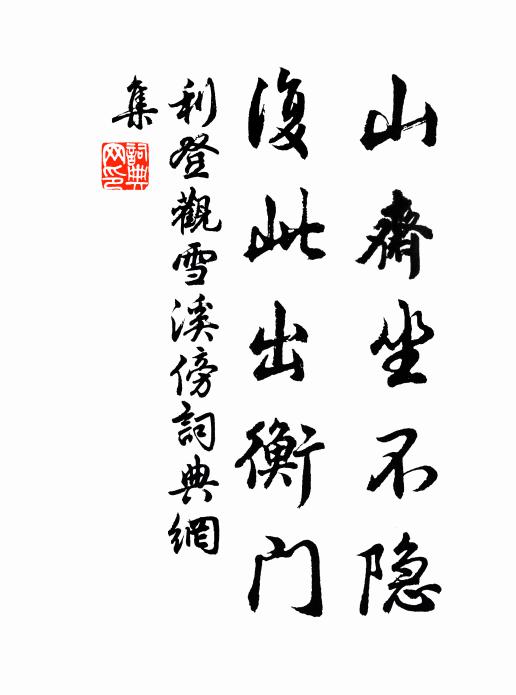 山齋坐不隐
復此出衡門
利登觀雪溪傍詞典網
集
詞典
网印